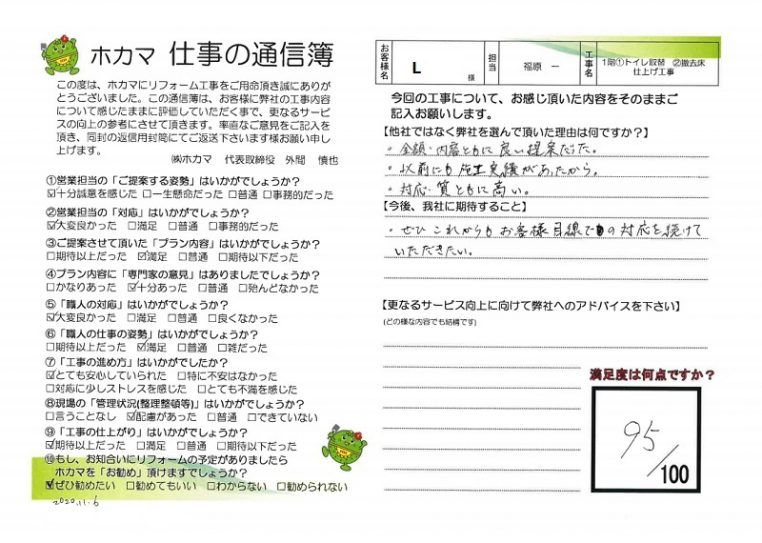 ホカマ 仕事の通信簿
この度は、ホカマにリフォーム工事をご用命頂き誠にありが
とうございました。この通信簿は、お客様に弊社の工事内容
について感じたままに評価していただく事で、更なるサービ
スの向上の参考にさせて頂きます。率直なご意見をご記入を
頂き、同封の返信用封筒にてご返送下さいます様お願い申し
上げます。
㈱ホカマ 代表取締役 外間 慎也
①営業担当の「ご提案する姿勢」はいかがでしょうか?
☑十分誠意を感じた □一生懸命だった □普通 □事務的だった
②営業担当の「対応」はいかがでしょうか?
☑大変良かった □満足 □普通 □事務的だった
③ご提案させて頂いた「プラン内容」はいかがでしょうか?
□期待以上だった ☑満足 □普通 □期待以下だった
④プラン内容に「専門家の意見」はありましたでしょうか?
□かなりあった ☑十分あった □普通 □殆んどなかった
⑤「職人の対応」はいかがでしょうか?
☑大変良かった □満足 □普通 □良くなかった
⑥「職人の仕事の姿勢」はいかがでしょうか?
□期待以上だった ☑満足 □普通 □雑だった
⑦「工事の進め方」はいかがでしたか?
☑とても安心していられた □特に不安はなかった
□対応に少しストレスを感じた □とても不満を感じた
⑧現場の「管理状況(整理整頓等)」はいかがでしょうか?
□言うことなし ☑配慮があった □普通 □できていない
⑨「工事の仕上がり」はいかがでしょうか?
☑期待以上だった □満足 □普通 □期待以下だった
⑩もし、お知合いにリフォームの予定がありましたら
ホカマを「お勧め」頂けますでしょうか?
☑ぜひ勧めたい □勧めてもいい □わからない □勧められない
2020.11.6
お客様名 L 様 担当 福原 一 工事名 1階①トイレ取替 ②撤去床
仕上げ工事
今回の工事について、お感じ頂いた内容をそのままご
記入お願いします。
【他社ではなく弊社を選んで頂いた理由は何ですか?】
・金額・内容ともに良い提案だった。
・以前にも施工実績があったから。
・対応・質ともに高い。
【今後、我社に期待すること】
・ぜひこれからもお客様目線での対応を続けて
いただきたい。
【更なるサービス向上に向けて弊社へのアドバイスを下さい】
(どの様な内容でも結構です)
満足度は何点ですか?
95/100